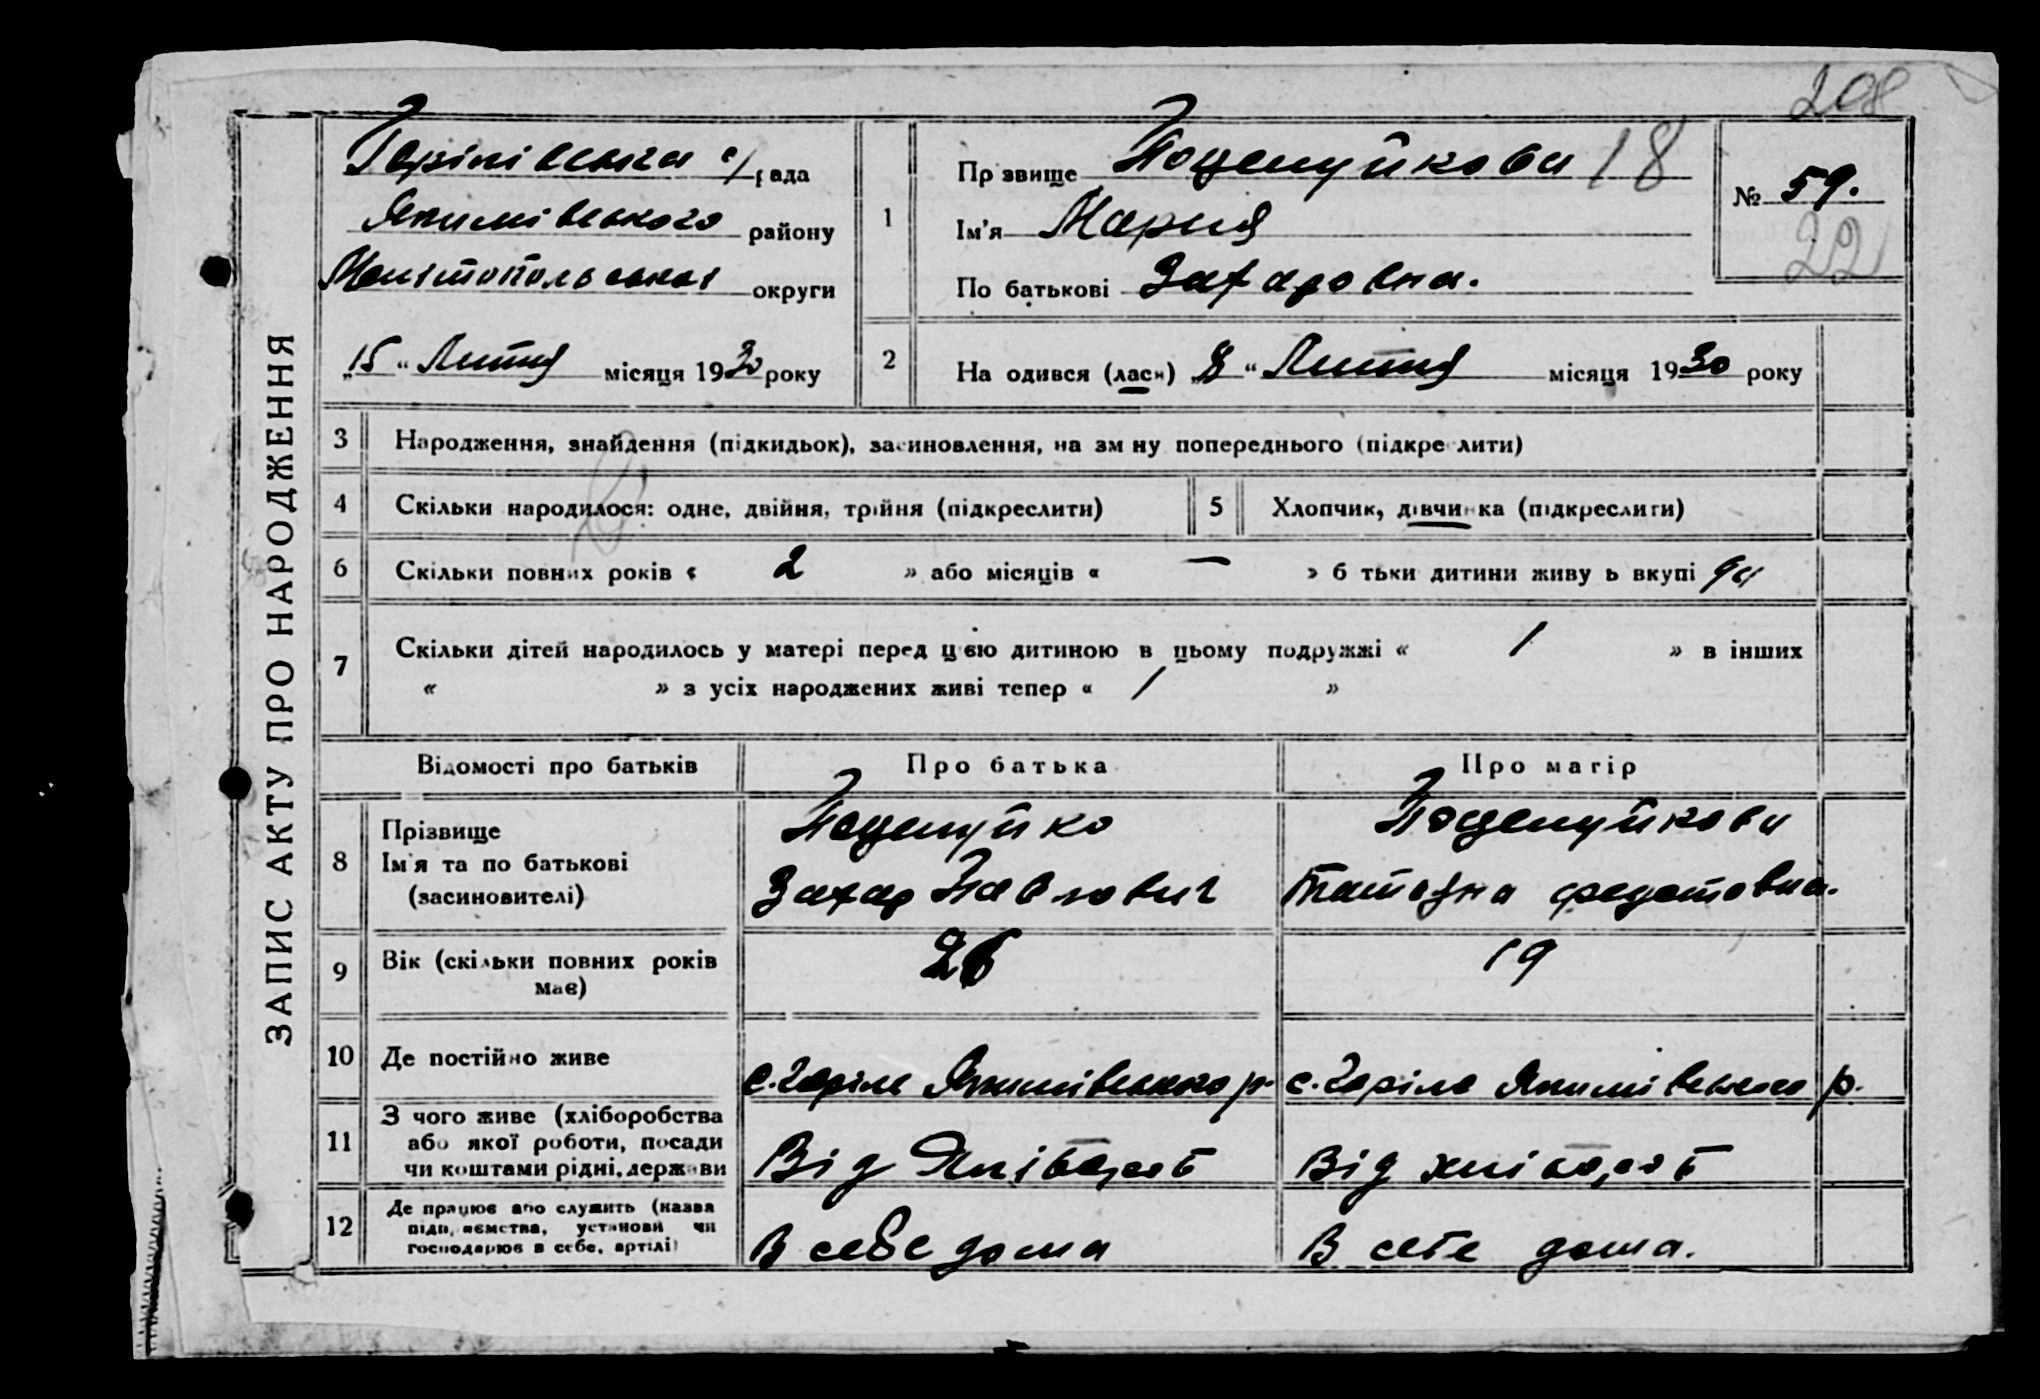 208
ЗАПИС АКТУ ПРО НАРОДЖЕННЯ
с/рада
Якимівського району
Мелітопольської округи
„15“ Лютня місяця 1930 року
1
Прізвище Поцелуйкова 18
Ім'я Мария
По батькові Захаровна.
№ 59.
22
2 На одився (лась) „8“ Лютня місяця 1930 року
3 Народження, знайдення (підкидьок), засиновлення, на зм ну попереднього (підкреслити)
4 Скільки народилося: одне, двійня, трійня (підкреслити) 5 Хлопчик, дівчинка (підкреслити)
6 Скільки повних років « 2 » або місяців « — » б тьки дитини живу ь вкупі
7 Скільки дітей народилось у матері перед цією дитиною в цьому подружжі « 1 » в інших
« » з усіх народжених живі тепер « 1 »
Відомості про батьків Про батька Про матір
8 Прізвище Поцелуйко Поцелуйкова
Ім'я та по батькові
(засиновителі) Захар Павлович Татяна Федотовна.
9 Вік (скільки повних років має) 26 19
10 Де постійно живе с. Якимівського р. с. Якимівського р.
11 З чого живе (хліборобства
або якої роботи, посади
чи коштами рідні, держави Від хлібороб Від хлібороб
12 Де працює або служить (назва
підприємства, установи чи
господарює в себе, артілі) В себе дома В себе дома.